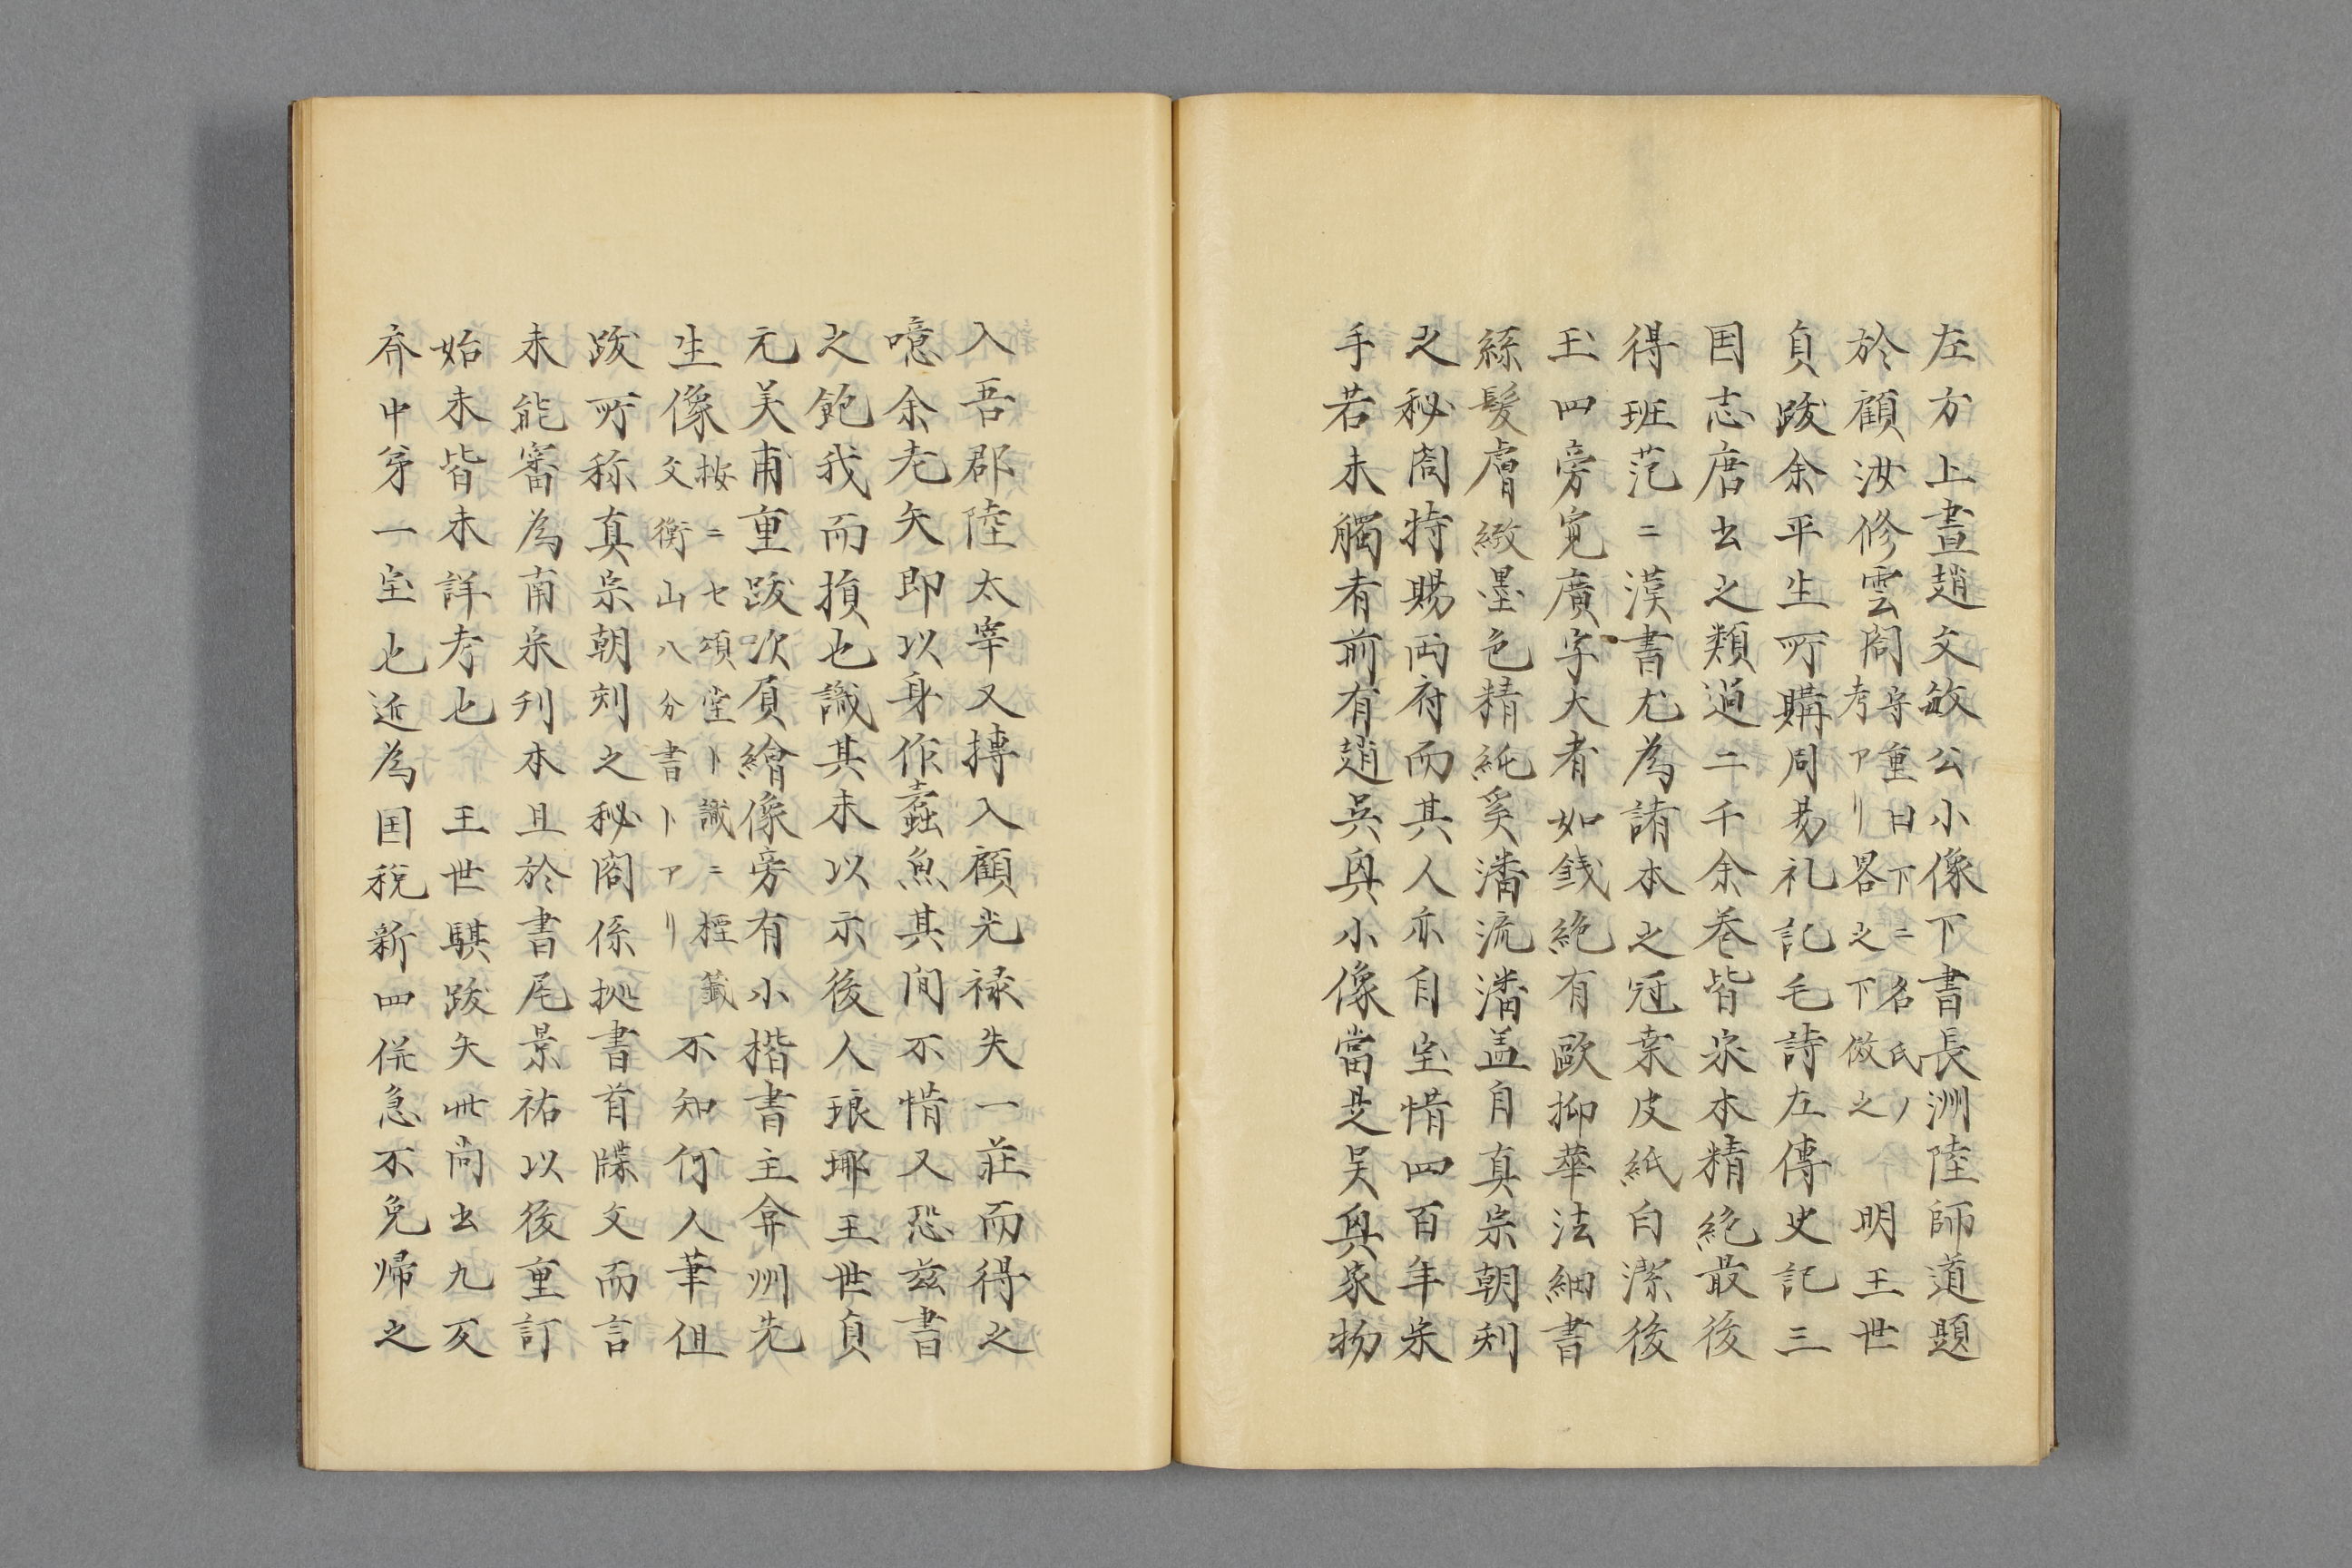 左方上畫趙文敏公小像下書長洲陸師道題
於顧汝修雲閣守重曰下ニ名氏ノ考アリ畧之下倣之 明王世
貞跋余平生所購周易礼記毛詩左傳史記三
国志唐出之類過二千余巻皆宋本精絶最後
得班范二漢書尤為諸本之冠桒皮紙白潔後
玉四旁寛廣字大者如銭絶有歐抑華法細書
絲髮膚緻墨色精純奚潘流瀋盖自真宗朝刻
之秘閣特賜両府而其人亦自宝惜四百年朱
手若未觸者前有趙呉興小像當是吴興家物
入吾郡陸太宰又摶入顧光禄失一荘而得之
噫余老矣即以身作蠹魚其間不惜又恐茲書
之飽我而損也識其末以示後人琅琊王世貞
元美甫重跋次頁繪像旁有小楷書主弇州先
生像按ニセ頌堂ト識ニ樫籖文衡山八分書トアリ不知何人筆但
跋所称真宗朝刻之秘閣係拠書首牒文而言
未能審為南宋刋本且於書尾景祐以後重訂
始末皆未詳考也 王世騏跋矢此尚出九友
斎中第一宝也近為国税新四併急不免帰之